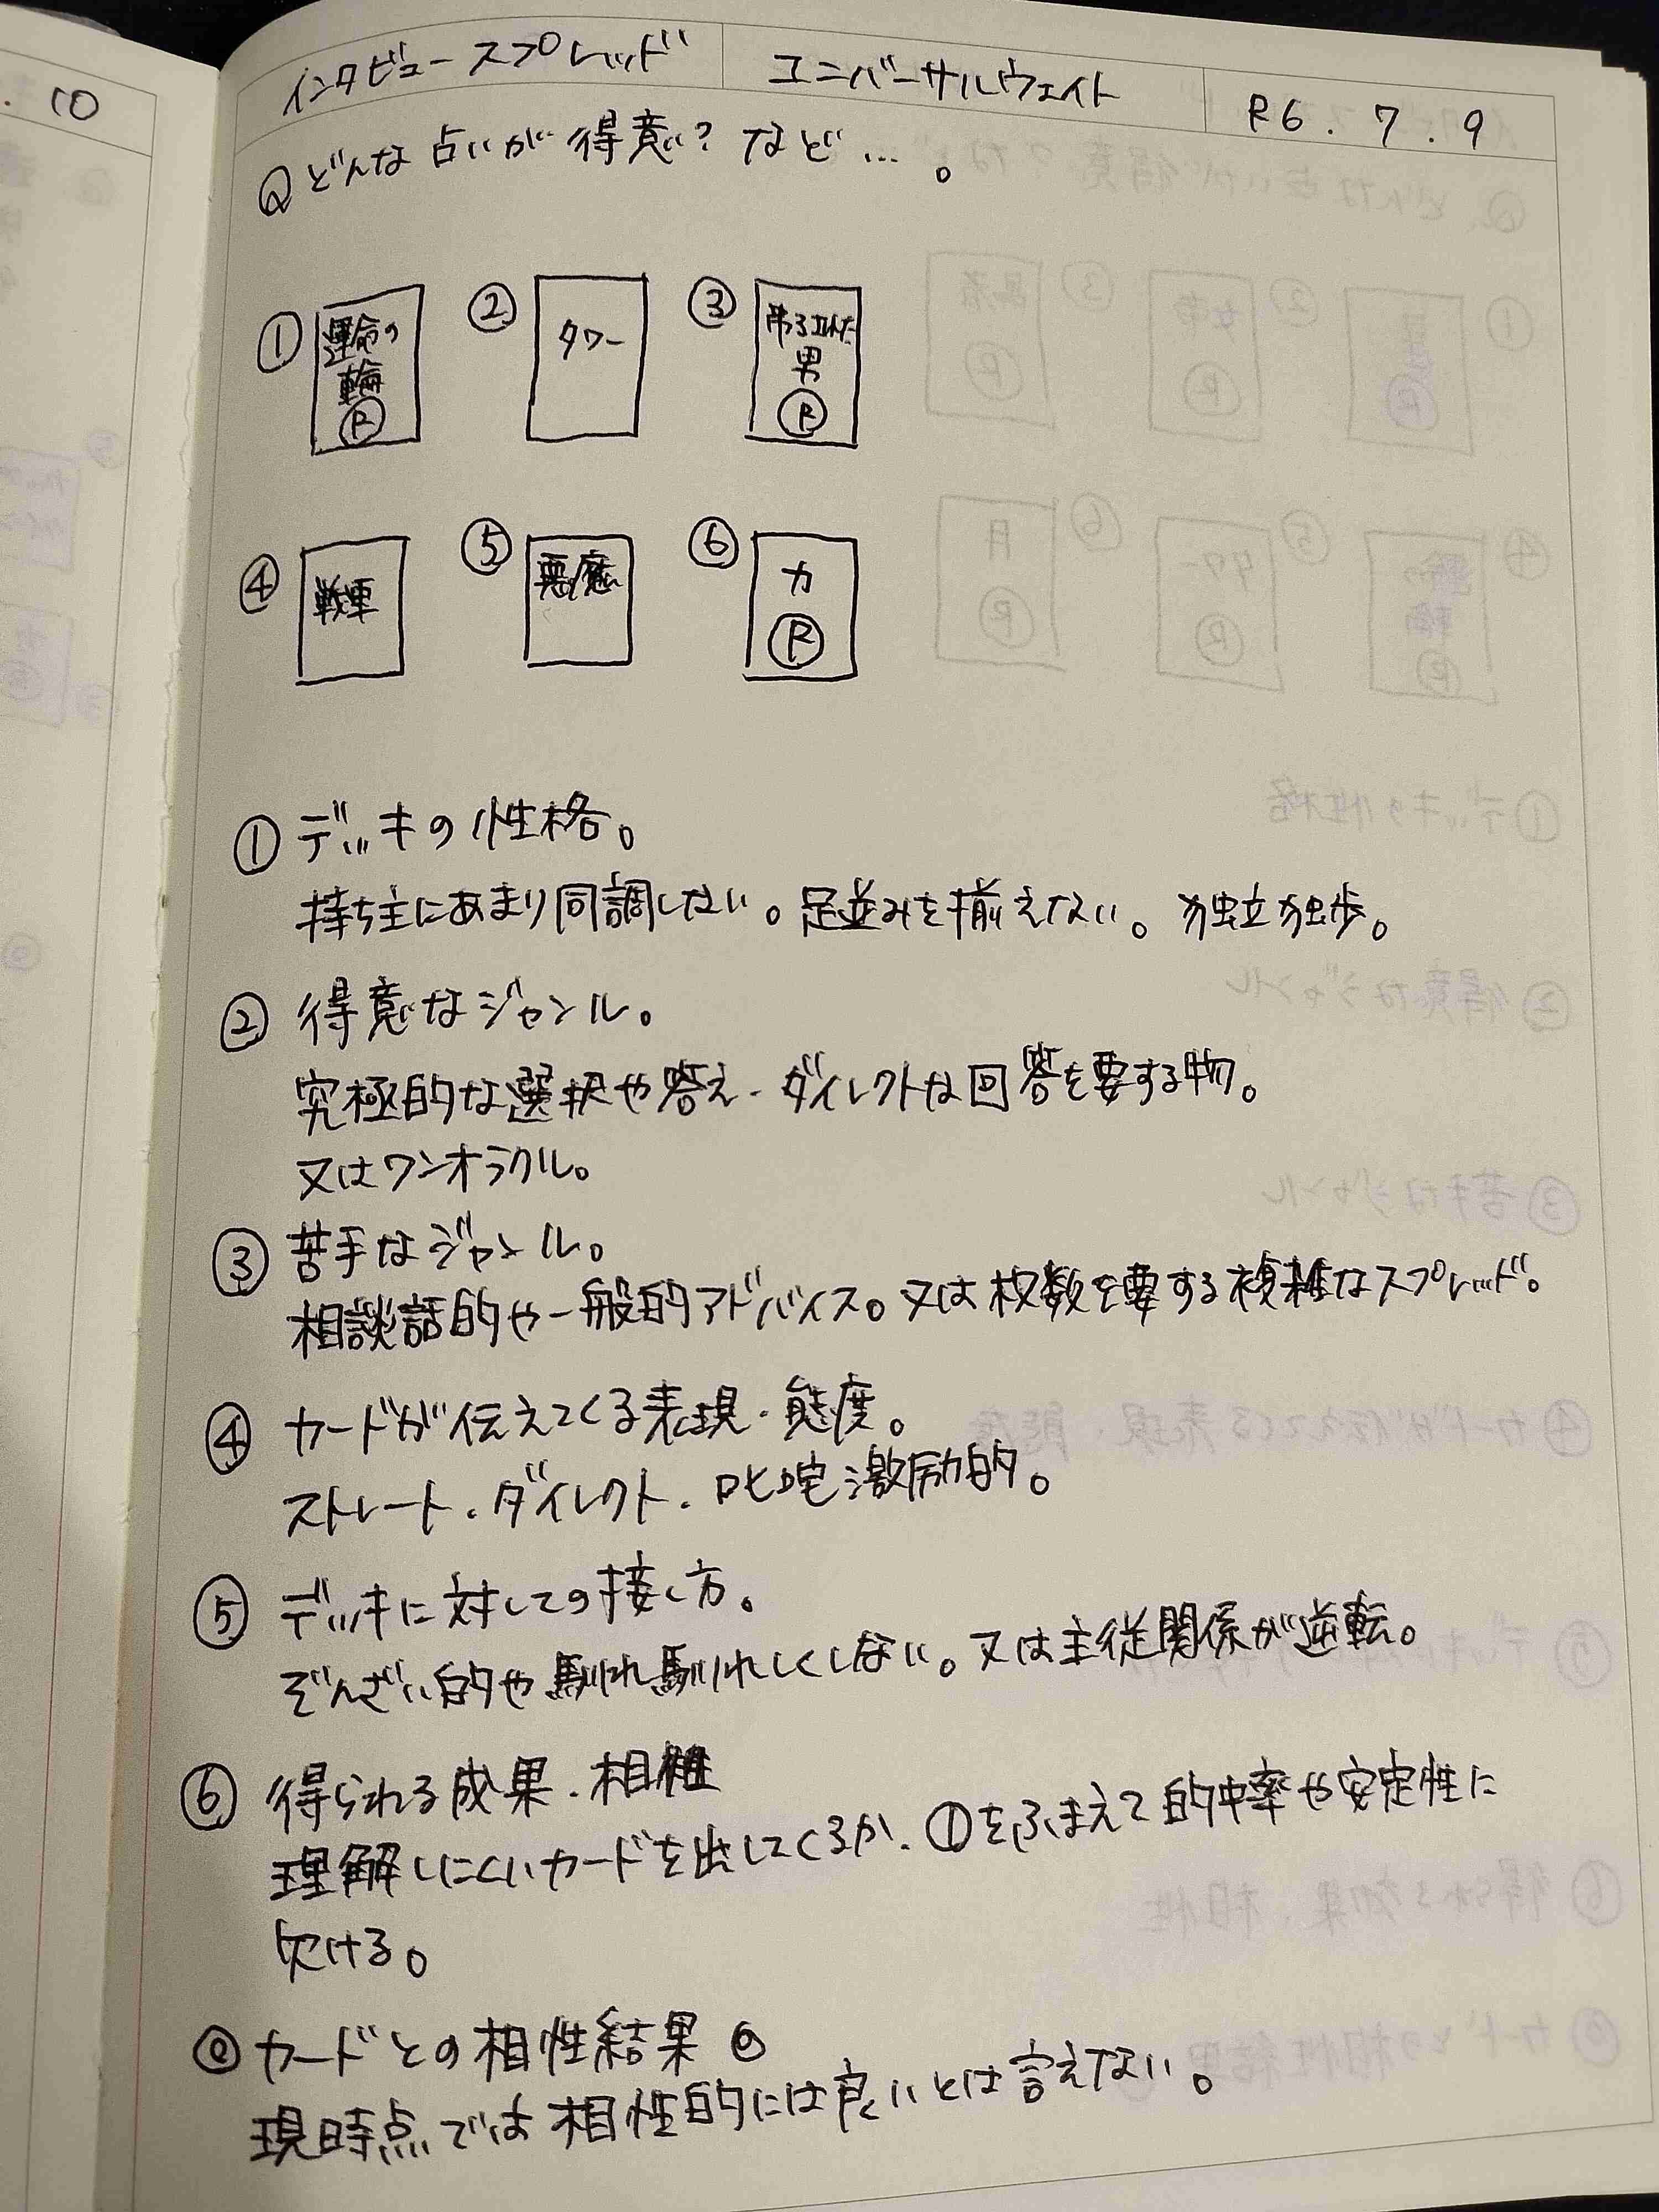 10
インタビュースプレッド ユニバーサルウェイト R6.7.9
Qどんな占いが得意?など…。
① 運命の輪 Ⓡ ② タワー ③ 吊るされた男 Ⓡ
④ 戦車 ⑤ 悪魔 ⑥ 力 Ⓡ
①デッキの性格。
持ち主にあまり同調しない。足並みを揃えない。独立独歩。
②得意なジャンル。
究極的な選択や答え・ダイレクトな回答を要する物。
又はワンオラクル。
③苦手なジャンル。
相談話的や一般的アドバイス。又は枚数を要する複雑なスプレッド。
④カードが伝えてくる表現・態度。
ストレート・ダイレクト・叱咤激励的。
⑤デッキに対しての接し方。
ぞんざい的や馴れ馴れしくしない。又は主従関係が逆転。
⑥得られる成果・相性
理解しにくいカードを出してくるか、①をふまえて的中率や安定性に
欠ける。
◎カードとの相性結果◎
現時点では相性的には良いとは言えない。